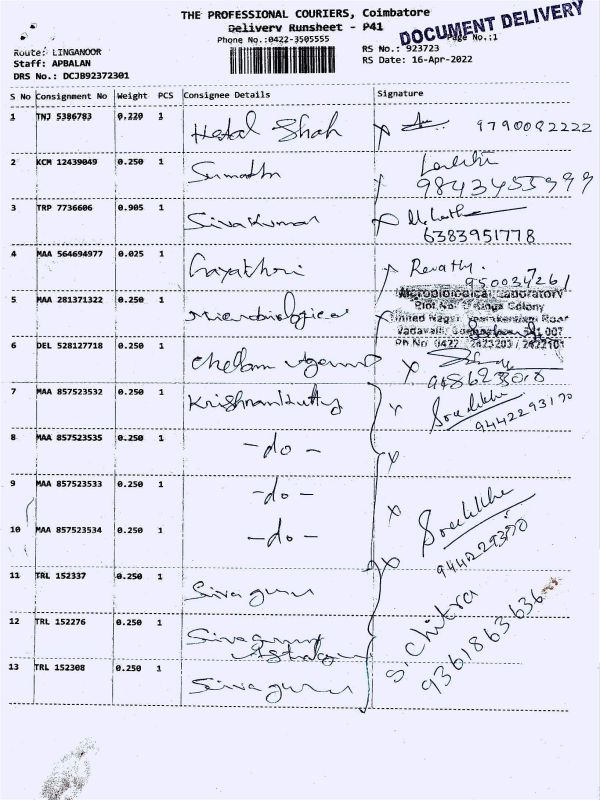 THE PROFESSIONAL COURIERS, Coimbatore
Delivery Runsheet - P41
DOCUMENT DELIVERY
Phone No.:0422-3505555
Page No.:1
Route: LINGANOOR
RS No.: 923723
Staff: APBALAN
RS Date: 16-Apr-2022
DRS No.: DCJB92372301
S No Consignment No Weight PCS Consignee Details Signature
1 TNJ 5386783 0.220 1 Hetal Shah X 9790082222
2 KCM 12439049 0.250 1 Sumathi
3 TRP 7736606 0.905 1 Sivakumar X 6383951778
4 MAA 564694977 0.025 1 Gayathri Revathy.
5 MAA 281371322 0.250 1 Microbiological
Microbiological Laboratory
Colony
Vadavalli
6 DEL 528127718 0.250 1 Chellam X
7 MAA 857523532 0.250 1 Krishnankutty X Sreelekha
9442293170
8 MAA 857523535 0.250 1 -do- X
9 MAA 857523533 0.250 1 -do- X Sreelekha
10 MAA 857523534 0.250 1 -do- X
11 TRL 152337 0.250 1 Sivaguru
12 TRL 152276 0.250 1 Sivaguru S. Chitra
9361863636
13 TRL 152308 0.250 1 Sivaguru